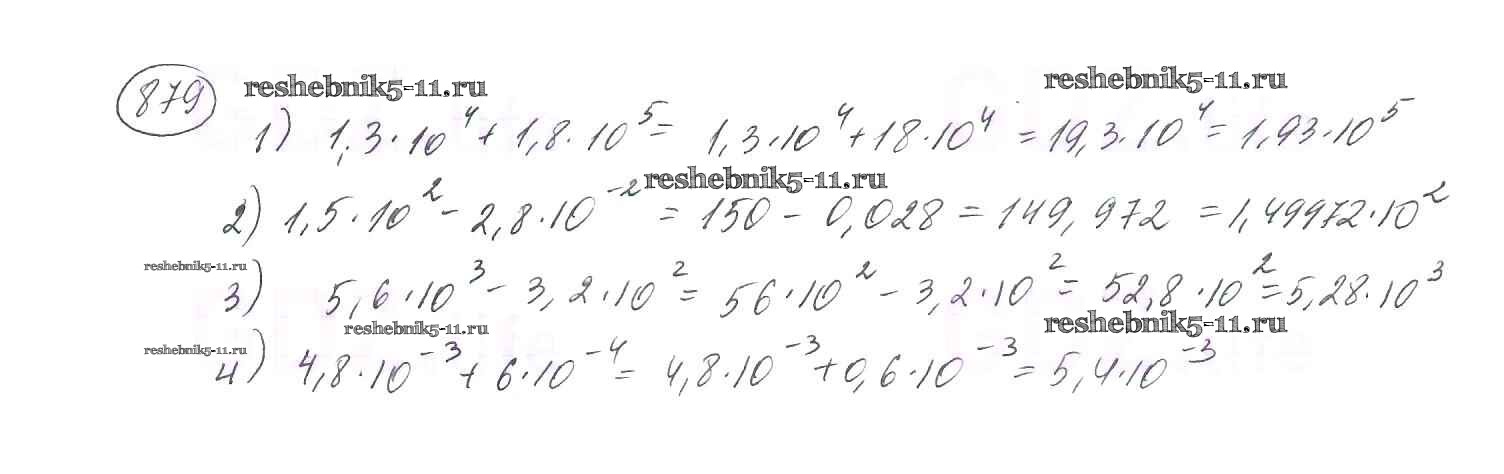 879 reshebnik5-11.ru reshebnik5-11.ru
1) 1,3·10⁴ + 1,8·10⁵ = 1,3·10⁴ + 18·10⁴ = 19,3·10⁴ = 1,93·10⁵
reshebnik5-11.ru
2) 1,5·10² - 2,8·10⁻² = 150 - 0,028 = 149,972 = 1,49972·10²
reshebnik5-11.ru
3) 5,6·10³ - 3,2·10² = 56·10² - 3,2·10² = 52,8·10² = 5,28·10³
reshebnik5-11.ru reshebnik5-11.ru
reshebnik5-11.ru
4) 4,8·10⁻³ + 6·10⁻⁴ = 4,8·10⁻³ + 0,6·10⁻³ = 5,4·10⁻³